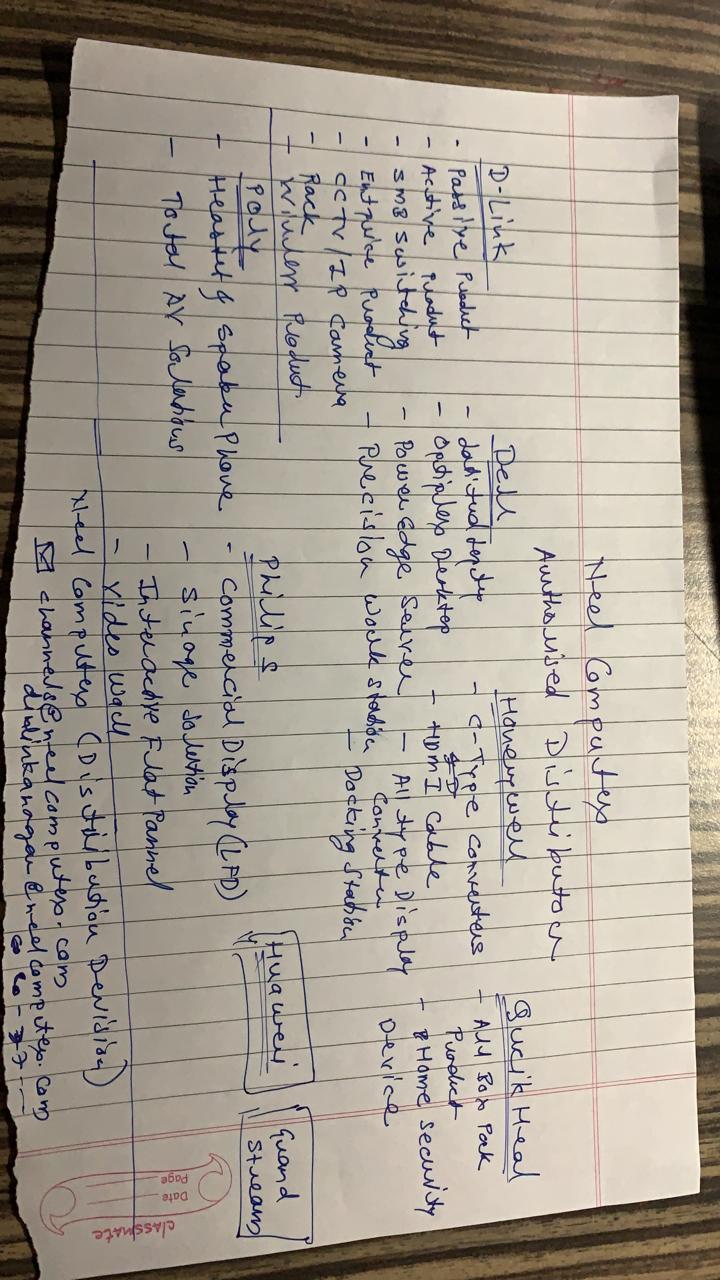 Neel Computex
Aunthorised Distributor
D-Link
- Passive Product
- Active Product
- SMB Switching
- Entprice Product
- CCTV/IP Camera
- Rack
- Wireless Product
Dell
- Optiplex Desktop
- Power Edge Server
- Precision Work Station
Honeywell
- C-Type Converters
- HDMI Cable
- All type Display
Converter
- Docking Station
Qucik Heal
- All Box Pack
Product
- Home Security
Device
Poly
- Headset & Speaker Phone
- Total AV Solutions
Philips
- Commercial Display (LFD)
- Sinage Solution
- Interactive Flat Pannel
- Video Wall
Huaweii
Grand
Stream
classmate
Date
Page
Neel Computex (Distribution Devision)
channels@neelcomputex.com
@neelcomputex.com